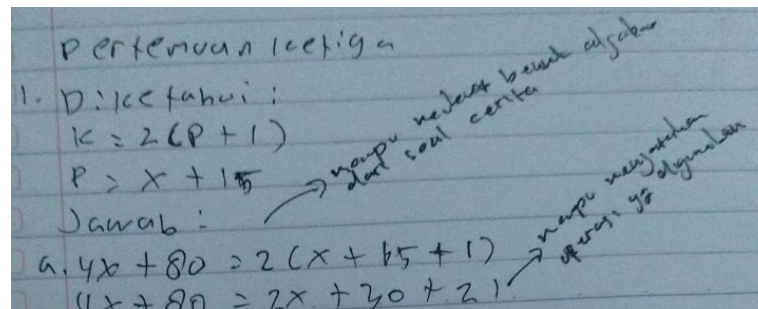 Pertemuan ketiga
1. Diketahui :
K = 2(P + 1)
P = x + 15
Jawab :
mampu membuat bentuk aljabar
dari soal cerita
a. 4x + 80 = 2(x + 15 + 1)
4x + 80 = 2x + 30 + 2
mampu menyatakan
operasi yg digunakan